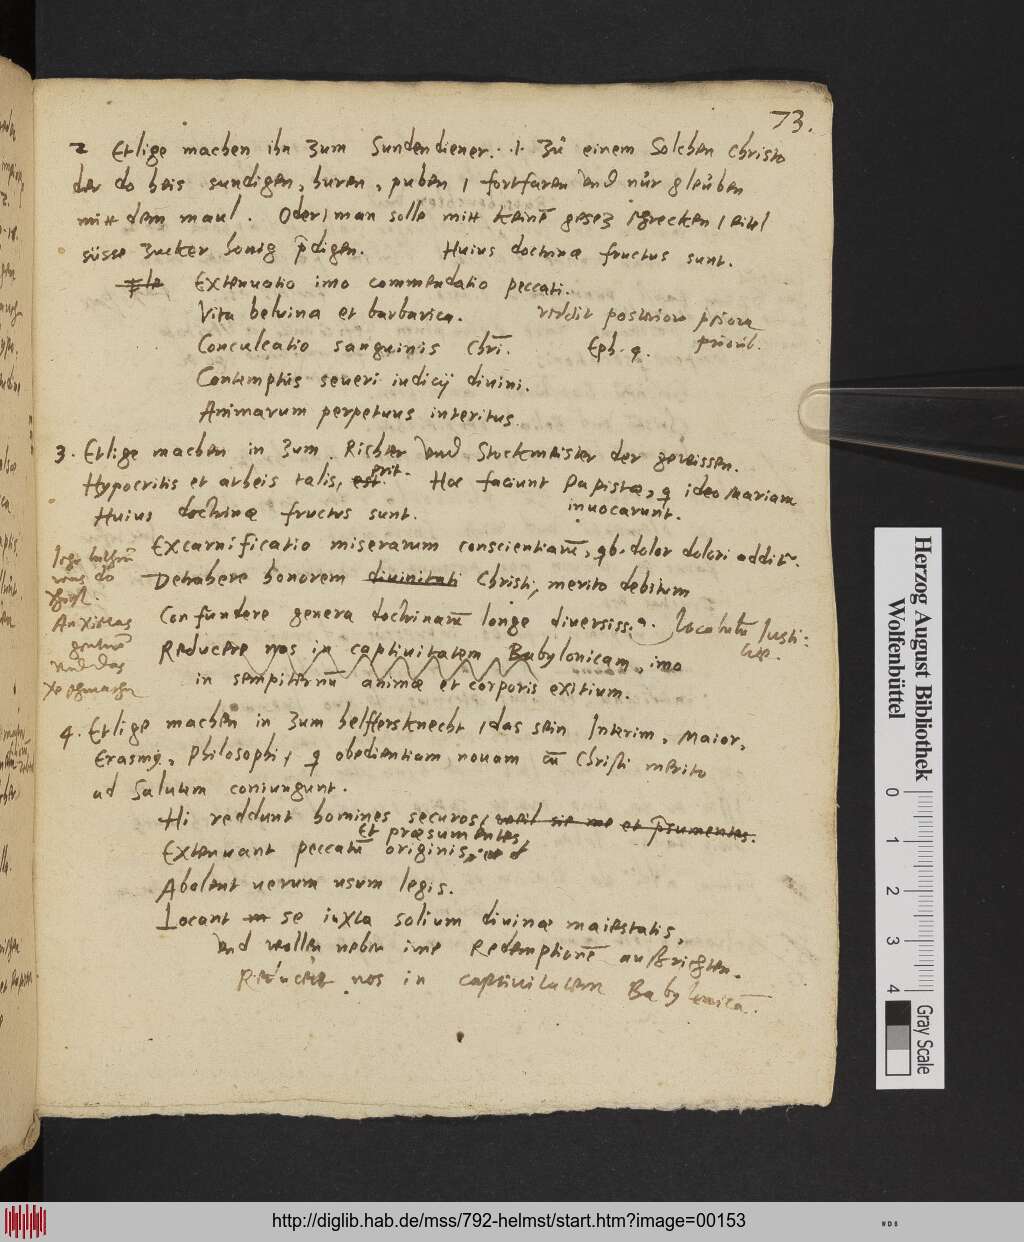 73.
2 Etlige machen ihn zum Sundendiener. .i. zu einem Solchen Christo
der do heis sundigen, huren, puben / fortfaren und nur gleuben
mitt dem maul. Oder / man solle mitt keinē gesez schrecken / eitel
süsse zucker honig p̄digen. Huius doctrinæ fructus sunt.
Extenuatio imo commendatio peccati.
Vita beluina et barbarica. reddit posteriora priora
priorib.
Conculcatio sanguinis Chrī. Eph. 4.
Contemptus seueri iudicij diuini.
Animarum perpetuus interitus.
3. Etlige machen in zum Richter und Stockmeister der gewissen.
Hypocritis et atheis talis, est. erit. Hoc faciunt Papistæ, q ideo Mariam
inuocarunt.
Huius doctrinæ fructus sunt.
Excarnificatio miserarum conscientiarū, qb. dolor dolori additr.
Detrahere honorem diuinitati Christi, merito debitum
Confundere genera doctrinarū longe diversiss.
Reducere nos in captiuitatem Babylonicam, imo
in sempiternū animæ et corporis exitium.
was do
Anxietas
und das
4. Etlige machen in zum helffersknecht / das sein Interim, Maior,
Erasmy, Philosophi / q obedientiam nouam cū Christi merito
ad Salutem coniungunt.
Hi reddunt homines securos, weil sie me et p̄sumentes.
Et præsumentes
Extenuant peccatū originis,
Abolent uerum usum legis.
Locant in se iuxta solium diuinæ maiestatis,
und wollen neben ime Redemptionē außrichten.
Reducere nos in captiuitatem Babylonicā.
Herzog August Bibliothek
Wolfenbüttel
0
1
2
3
4
Gray Scale
http://diglib.hab.de/mss/792-helmst/start.htm?image=00153